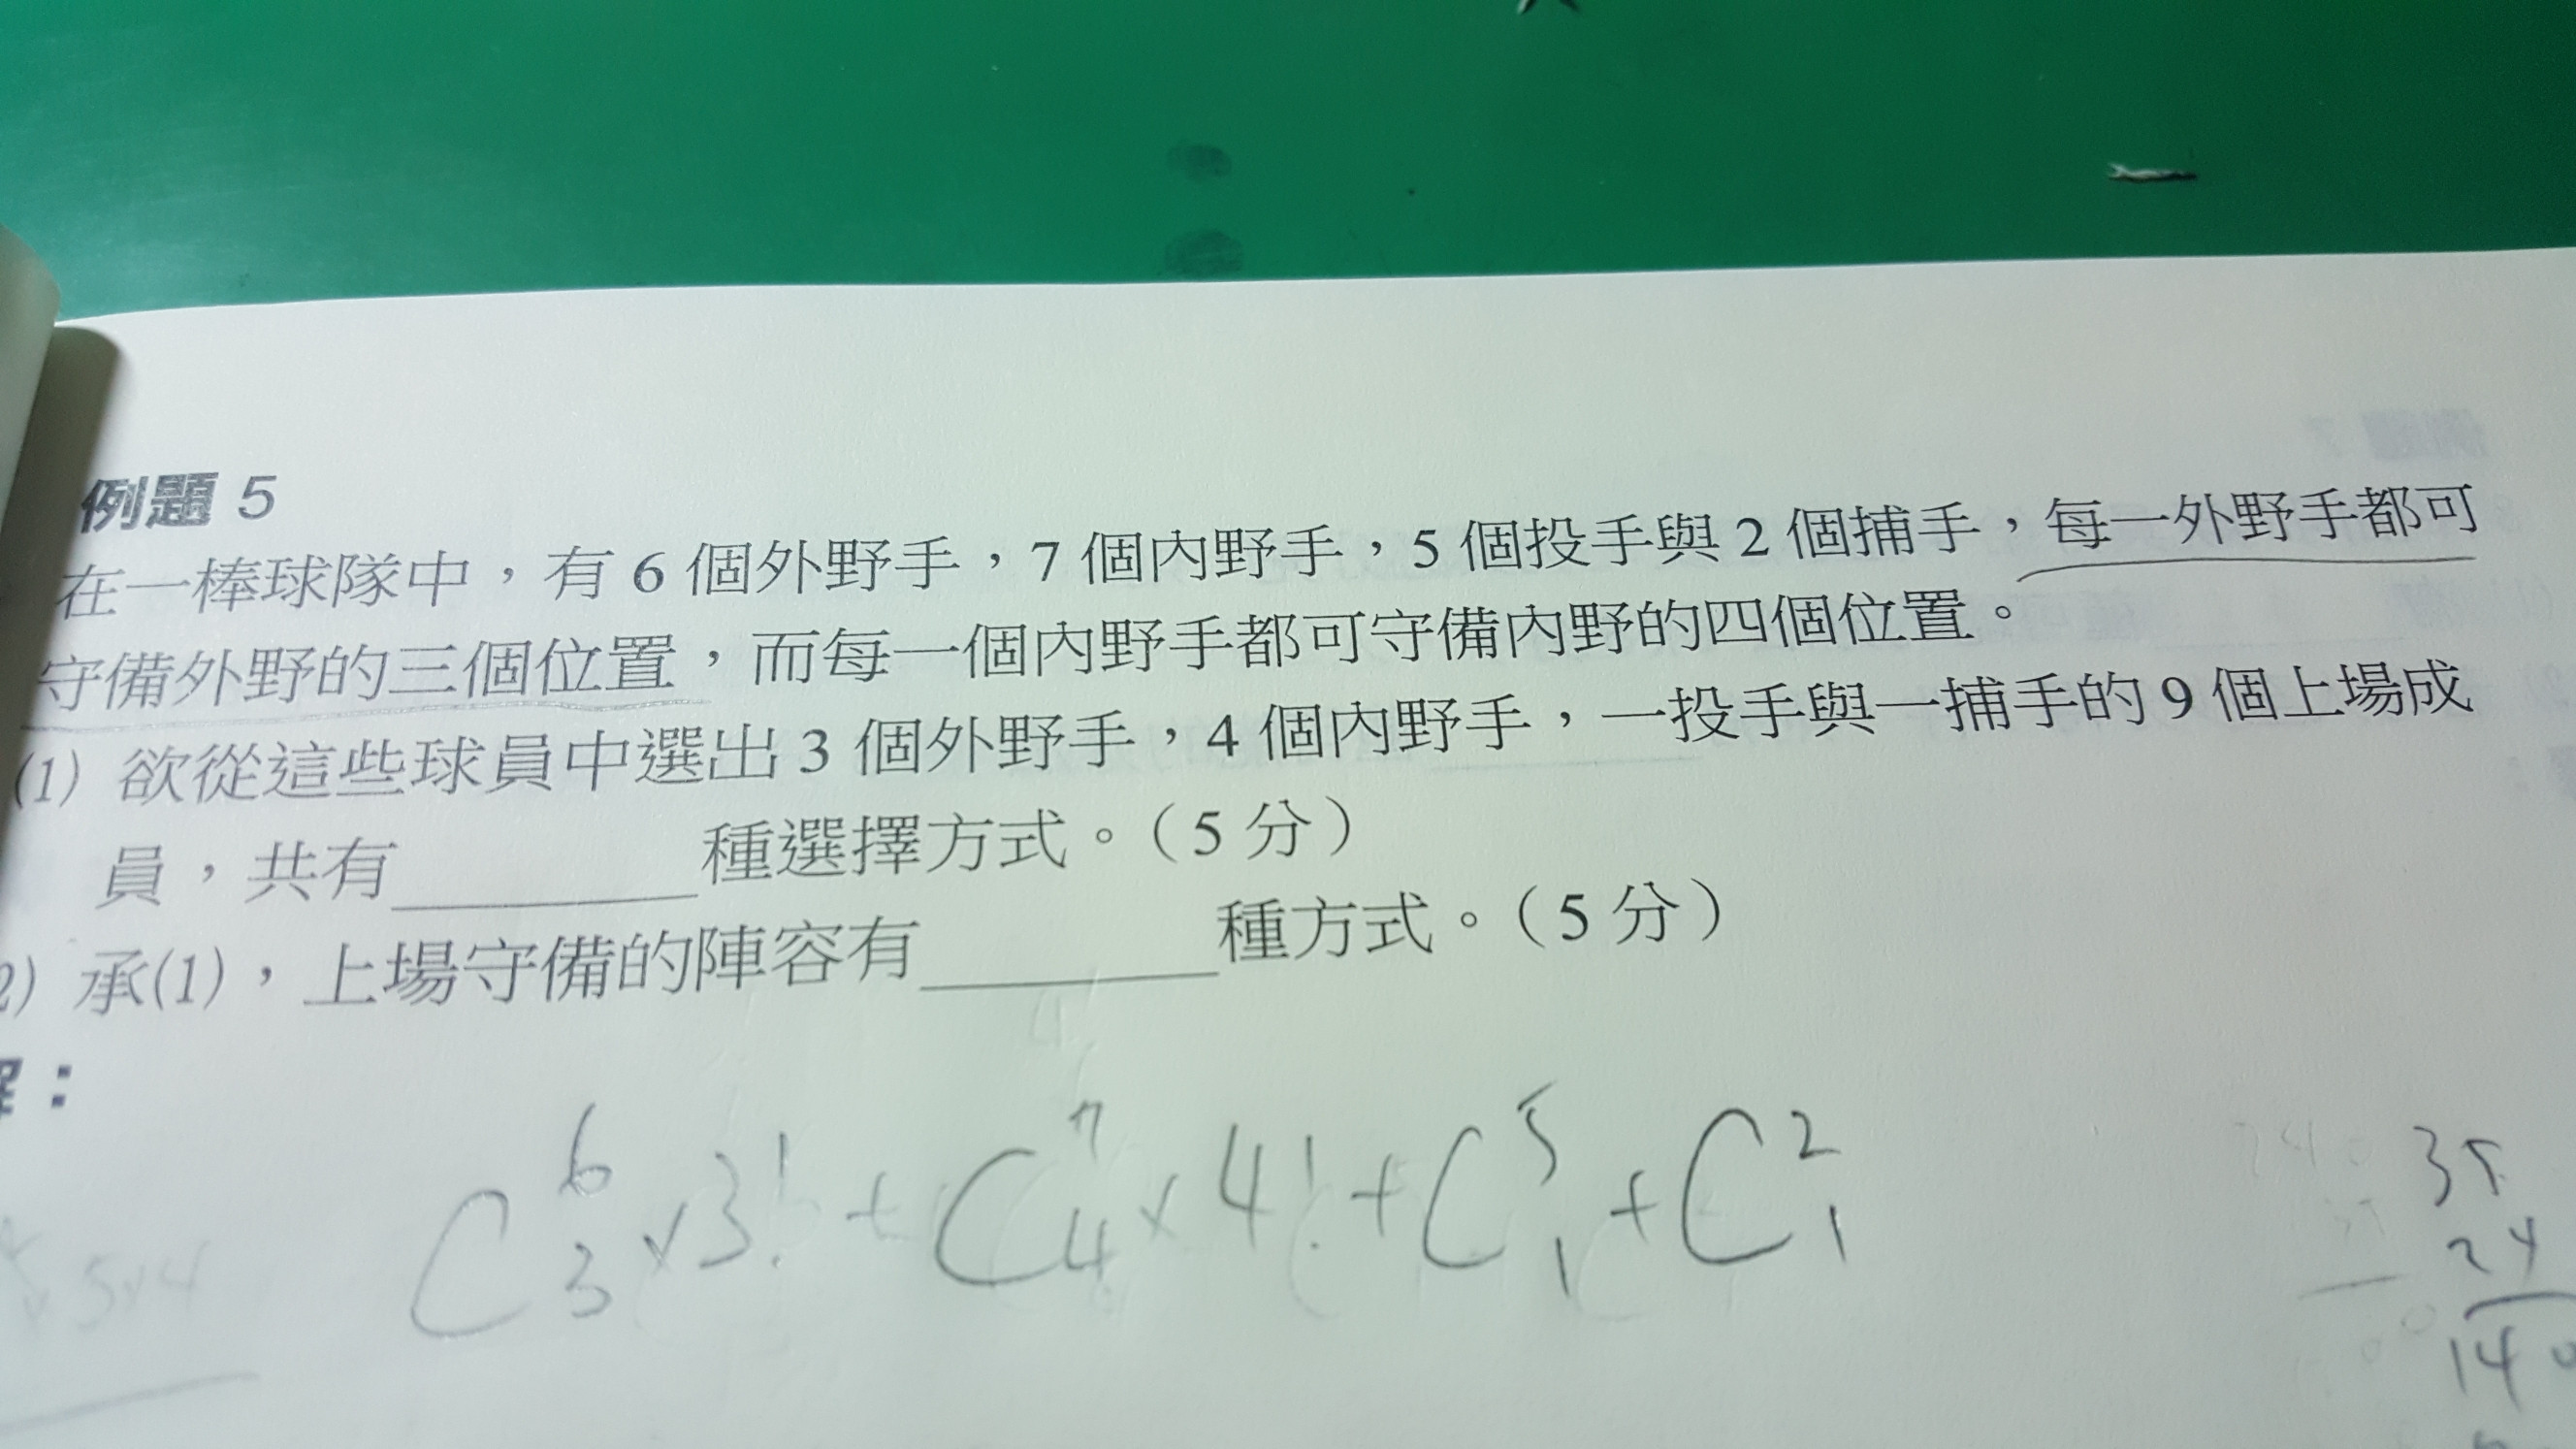 例題 5
在一棒球隊中，有 6 個外野手，7 個內野手，5 個投手與 2 個捕手，每一外野手都可
守備外野的三個位置，而每一個內野手都可守備內野的四個位置。
(1) 欲從這些球員中選出 3 個外野手，4 個內野手，一投手與一捕手的 9 個上場成
員，共有________種選擇方式。（5 分）
2) 承(1)，上場守備的陣容有________種方式。（5 分）
C⁶₃×3! + C⁷₄×4! + C⁵₁ + C²₁
35
24
14